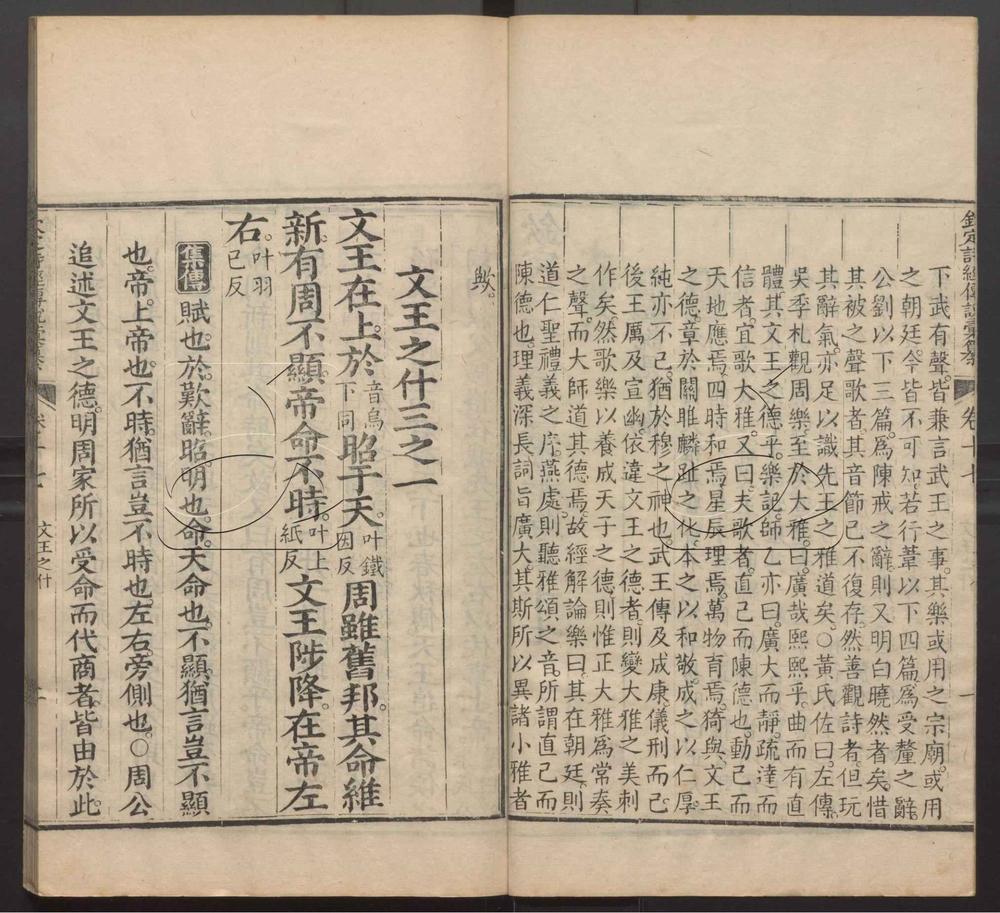 欽定詩經傳說彙纂 卷十七 一
下武有聲皆兼言武王之事其樂或用之宗廟或用
之朝廷今皆不可知若行葦以下四篇爲受釐之辭
公劉以下三篇爲陳戒之辭則又明白曉然者矣惜
其被之聲歌者其音節已不復存然善觀詩者但玩
其辭氣亦足以識先王之雅道矣○黃氏佐曰左傳
吳季札觀周樂至於大雅曰廣哉熙熙乎曲而有直
體其文王之德乎樂記師乙亦曰廣大而靜疏達而
信者宜歌大雅又曰夫歌者直己而陳德也動己而
天地應焉四時和焉星辰理焉萬物育焉猗與文王
之德章於關雎麟趾之化本之以和敬成之以仁厚
純亦不已猶於穆之神也武王傳及成康儀刑而已
後王厲及宣幽依違文王之德者則變大雅之美刺
作矣然歌樂以養成天子之德則惟正大雅爲常奏
之聲而大師道其德焉故經解論樂曰其在朝廷則
道仁聖禮義之序燕處則聽雅頌之音所謂直己而
陳德也理義深長詞旨廣大其斯所以異諸小雅者
歟
文王之什三之一
文王在上於音烏下同昭于天叶鐵因反周雖舊邦其命維
新有周不顯帝命不時叶上紙反文王陟降在帝左
右叶羽己反
集傳 賦也於歎辭昭明也命天命也不顯猶言豈不顯
也帝上帝也不時猶言豈不時也左右旁側也○周公
追述文王之德明周家所以受命而代商者皆由於此
文王之什 一